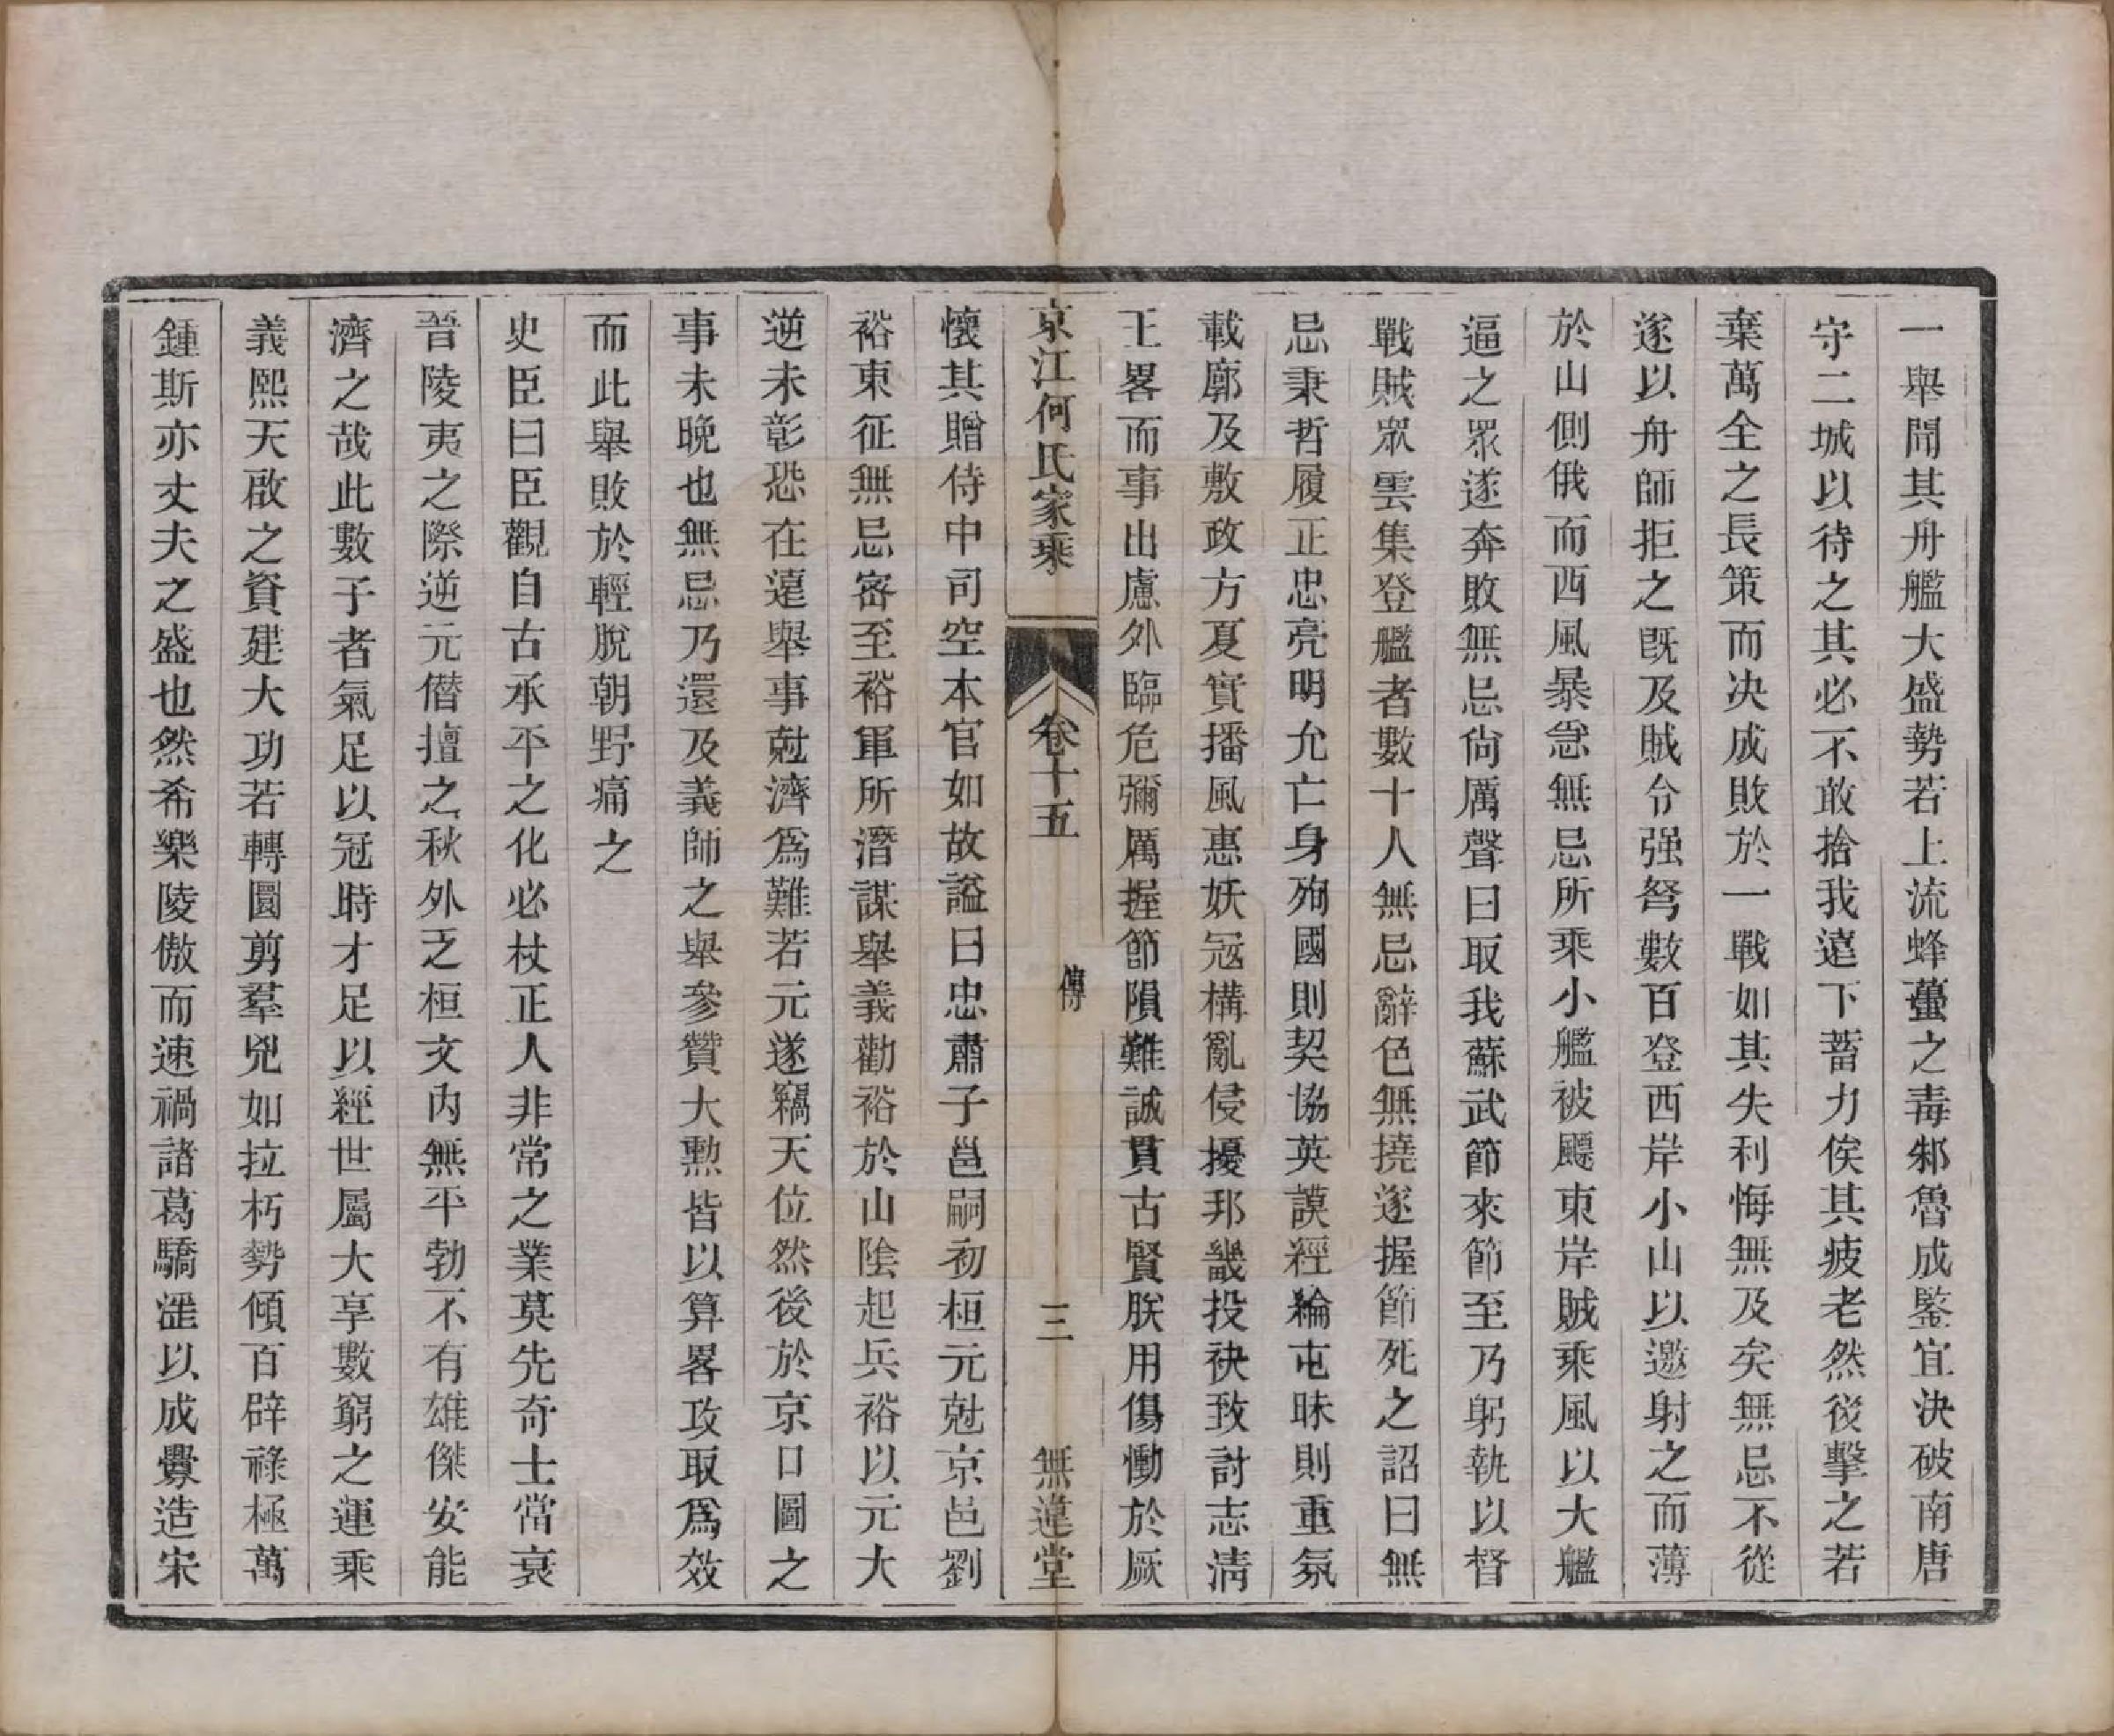 一舉聞其舟艦大盛勢若上流蜂蠆之毒邾魯成鑒宜決破南唐
守二城以待之其必不敢捨我遠下蓄力俟其疲老然後擊之若
棄萬全之長策而决成敗於一戰如其失利悔無及矣無忌不從
遂以舟師拒之旣及賊令强弩數百登西岸小山以邀射之而薄
於山側俄而西風暴急無忌所乘小艦被飃東岸賊乘風以大艦
逼之眾遂奔敗無忌尙厲聲曰取我蘇武節來節至乃躬執以督
戰賊眾雲集登艦者數十人無忌辭色無撓遂握節死之詔曰無
忌秉哲履正忠亮明允亡身殉國則契協英謨經綸屯昧則重氛
載廓及敷政方夏實播風惠妖冦構亂侵擾邦畿投袂致討志清
王畧而事出慮外臨危彌厲握節隕難誠貫古賢朕用傷慟於厥
京江何氏家乘 卷十五 傳 三 無違堂
懷其贈侍中司空本官如故謚曰忠肅子邕嗣初桓元尅京邑劉
裕東征無忌密至裕軍所潛謀舉義勸裕於山陰起兵裕以元大
逆未彰恐在遠舉事尅濟爲難若元遂竊天位然後於京口圖之
事未晚也無忌乃還及義師之舉參贊大勲皆以算畧攻取爲效
而此舉敗於輕脫朝野痛之
史臣曰臣觀自古承平之化必杖正人非常之業莫先奇士當衰
晉陵夷之際逆元僭擅之秋外乏桓文内無平勃不有雄傑安能
濟之哉此數子者氣足以冠時才足以經世屬大享數窮之運乘
義熙天啟之資建大功若轉圜剪羣兇如拉朽勢傾百辟祿極萬
鍾斯亦丈夫之盛也然希樂陵傲而速禍諸葛驕滛以成釁造宋